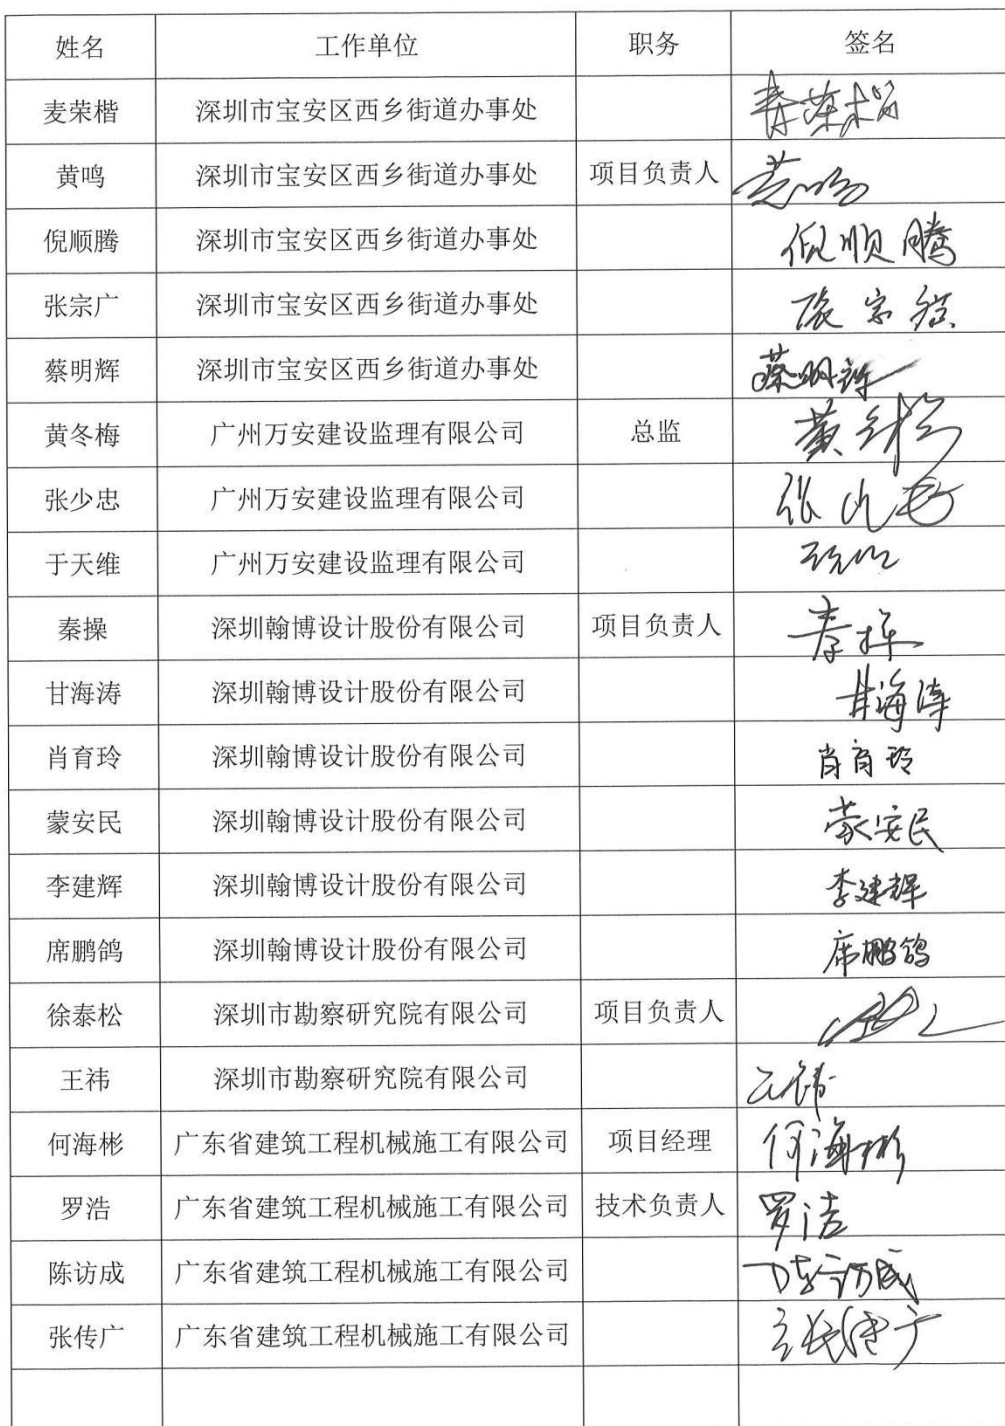 姓名 工作单位 职务 签名
麦荣楷 深圳市宝安区西乡街道办事处 麦荣楷
黄鸣 深圳市宝安区西乡街道办事处 项目负责人 黄鸣
倪顺腾 深圳市宝安区西乡街道办事处 倪顺腾
张宗广 深圳市宝安区西乡街道办事处
蔡明辉 深圳市宝安区西乡街道办事处 蔡明辉
黄冬梅 广州万安建设监理有限公司 总监 黄冬梅
张少忠 广州万安建设监理有限公司
于天维 广州万安建设监理有限公司
秦操 深圳翰博设计股份有限公司 项目负责人 秦操
甘海涛 深圳翰博设计股份有限公司 甘海涛
肖育玲 深圳翰博设计股份有限公司 肖育玲
蒙安民 深圳翰博设计股份有限公司 蒙安民
李建辉 深圳翰博设计股份有限公司 李建辉
席鹏鸽 深圳翰博设计股份有限公司 席鹏鸽
徐泰松 深圳市勘察研究院有限公司 项目负责人
王祎 深圳市勘察研究院有限公司
何海彬 广东省建筑工程机械施工有限公司 项目经理 何海彬
罗浩 广东省建筑工程机械施工有限公司 技术负责人 罗浩
陈访成 广东省建筑工程机械施工有限公司 陈访成
张传广 广东省建筑工程机械施工有限公司 张传广